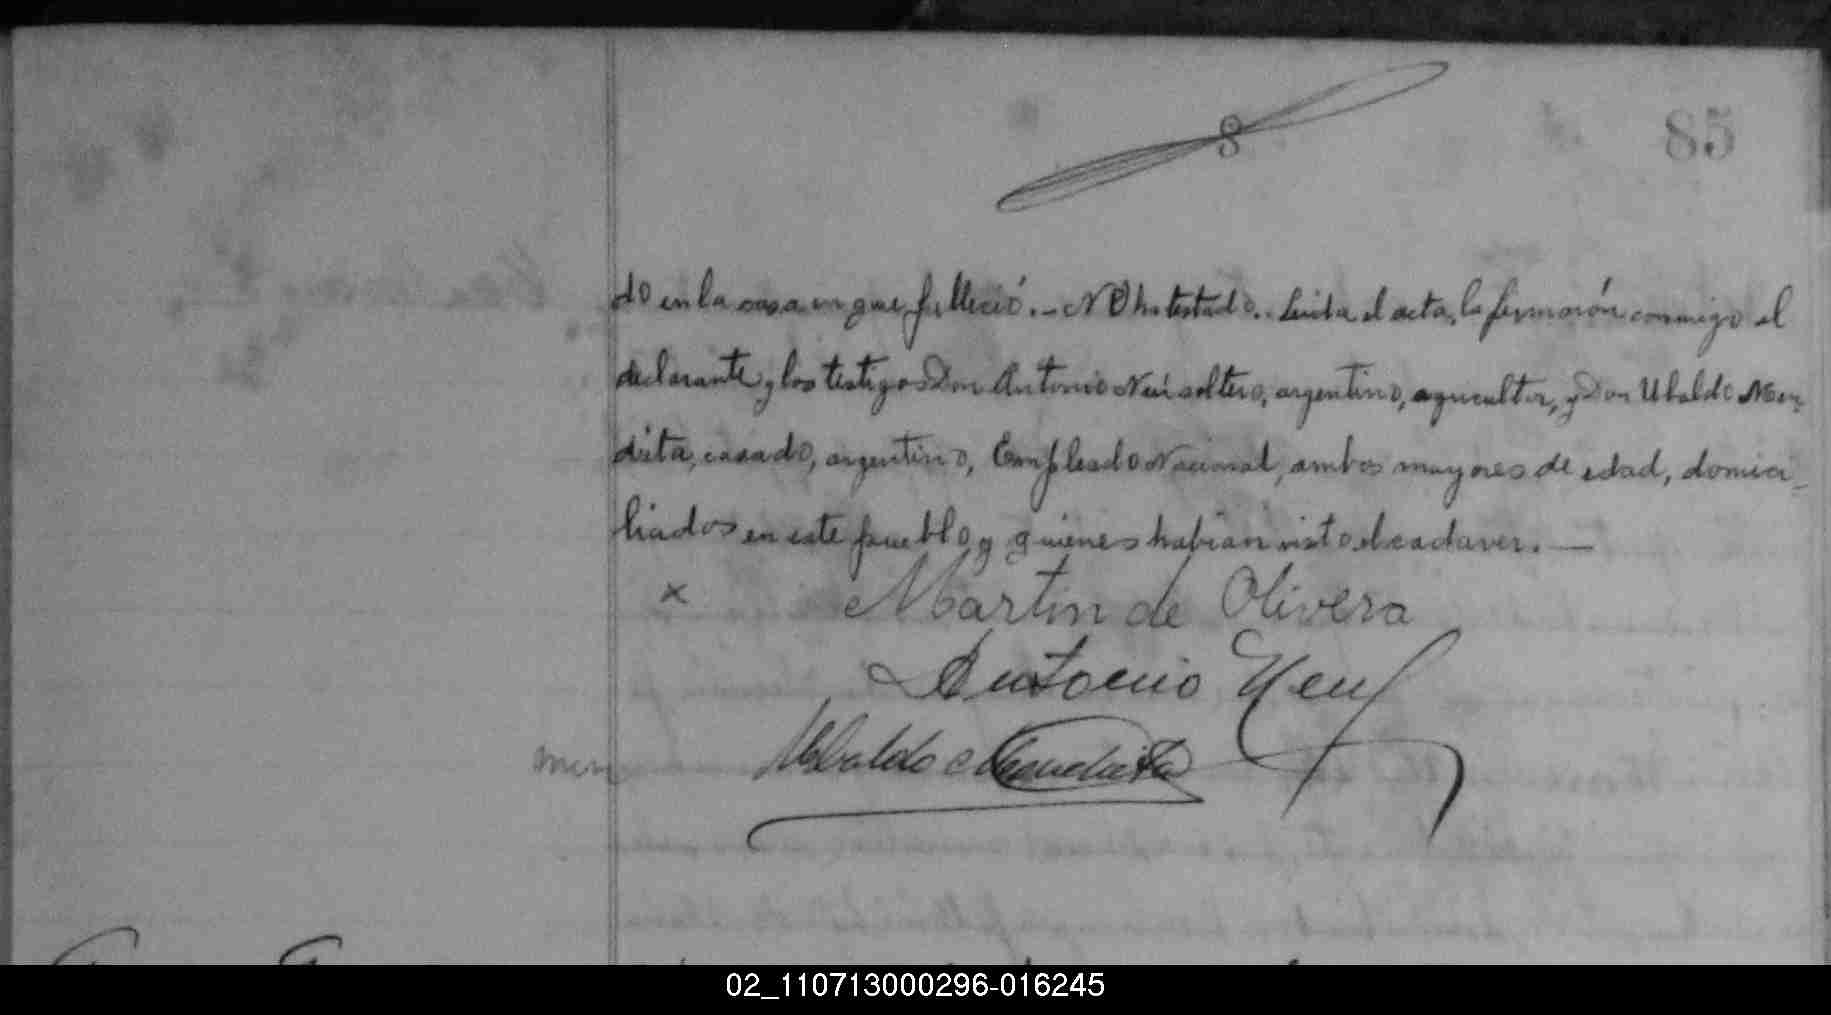 8
85
do en la casa en que falleció.- NO ha testado.- Leida el acta, la firmarón conmigo el
declarante, y los testigos Don Antonio Neu soltero, argentino, agricultor, y Don Ubaldo Men-
dieta, casado, argentino, Empleado Nacional, ambos mayores de edad, domici-
liados en este pueblo, y quiénes habian visto el cadaver.—
x Martin de Olivera
Antonio Neu
Ubaldo Mendieta
02_110713000296-016245